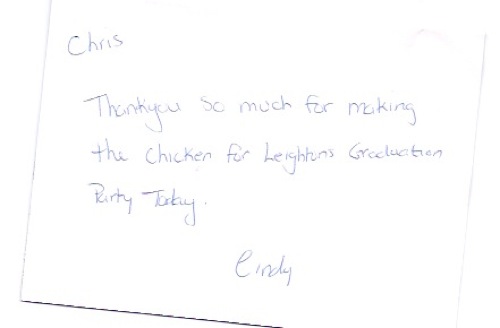 Chris
Thankyou so much for making
the Chicken for Leightons Graduation
Party Today.
Cindy